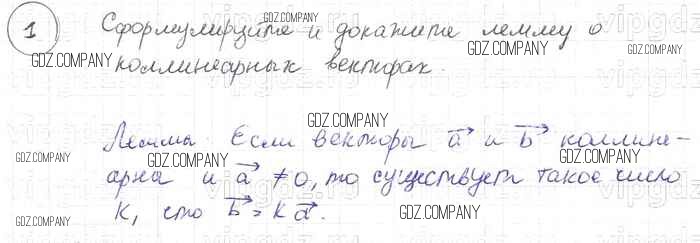 1 Сформулируйте и докажите лемму о
коллинеарных векторах.
Лемма. Если векторы a⃗ и b⃗ коллине-
арна и a⃗ ≠ 0, то существует такое число
К, что b⃗ = К a⃗.
GDZ.COMPANY
GDZ.COMPANY
GDZ.COMPANY
GDZ.COMPANY
GDZ.COMPANY
GDZ.COMPANY
GDZ.COMPANY
GDZ.COMPANY
GDZ.COMPANY
GDZ.COMPANY